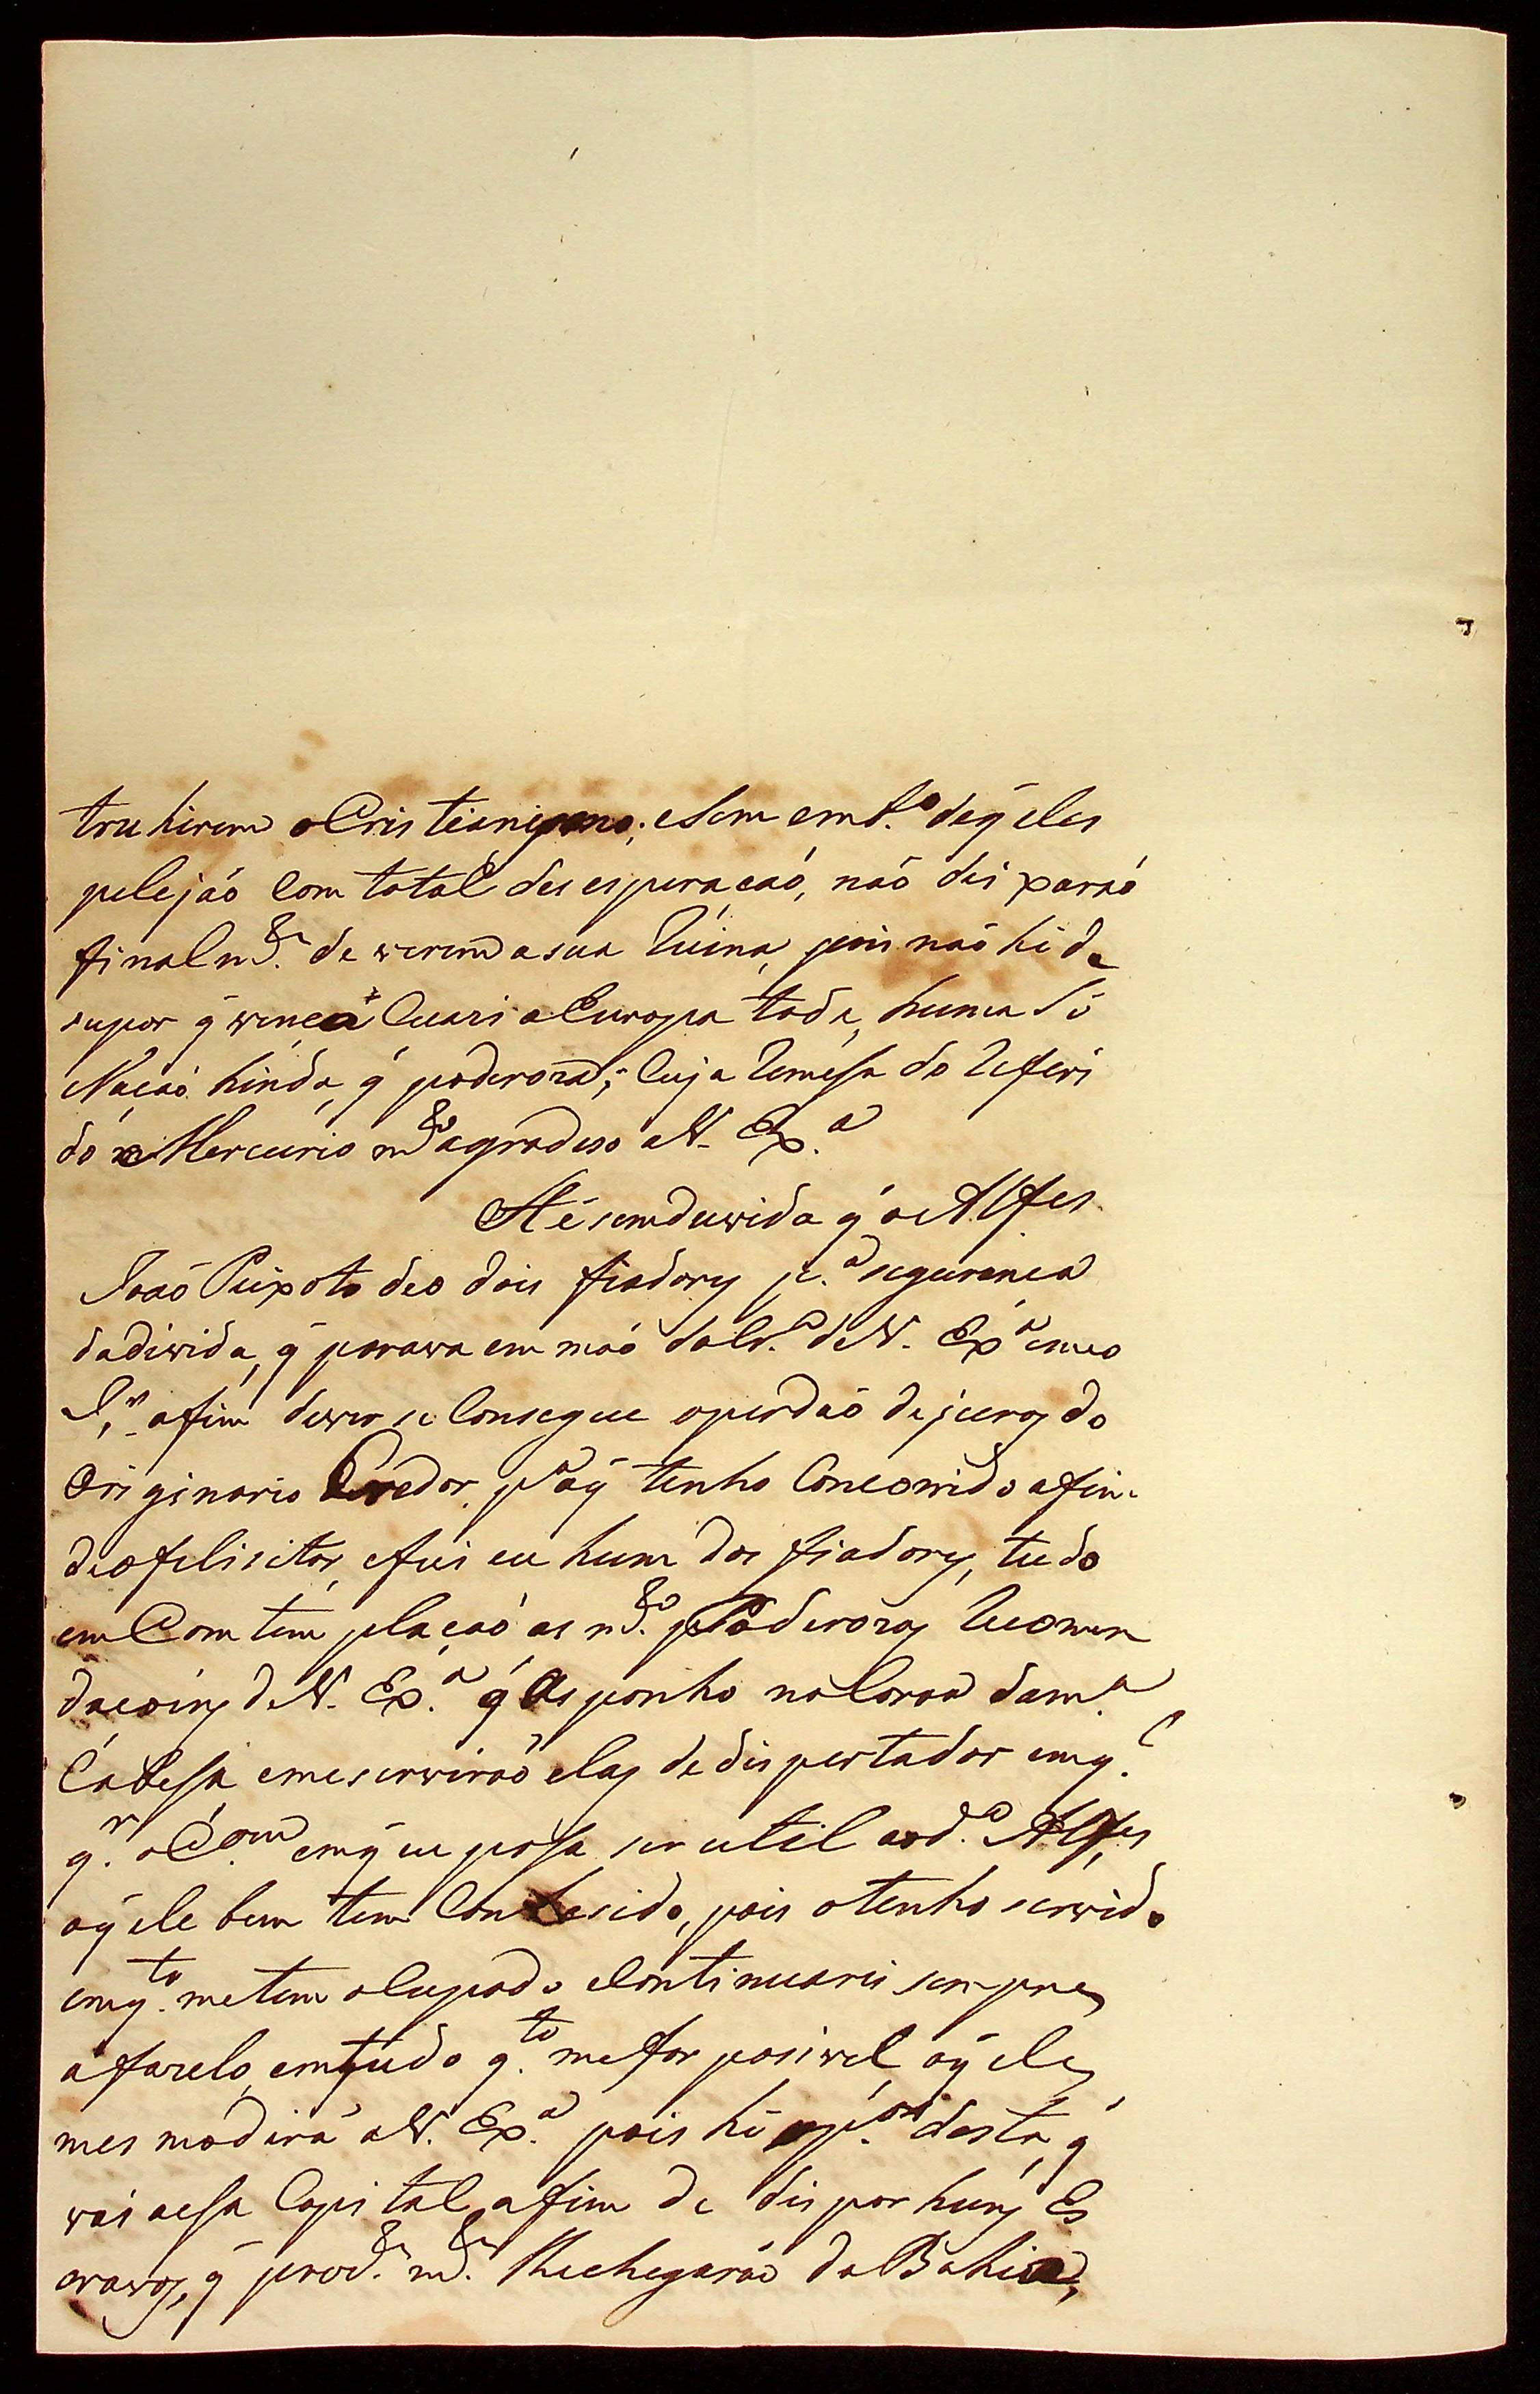 truhirem o Cristianismo; e Sem emb.º de q̃ eles
pelejáo Com total desesperaçaó, naó deixaraó
finalm.te de verem a sua Ruina, pois naó hé de
supor q̃ vença Cuazi a Europa toda, huma Só
Naçaó hinda q̃ poderoza; Cuja Remesa do Referi
do Mercurio m.to agradeso a V. Ex.a
Hé sem duvida q̃ o Alfes
Joaó Peixoto deo dois fiadory p.a segurança
da divida, q̃ parava em máo do Cr.º de V. Ex.a e meo
S.r afim de ver se Consegue o perdaó de juros do
Originario Credor p.a o q̃ tenho Concorrido afim
de o felisitar, e fui eu hum dos fiadory, tudo
em Comtemplaçaó as m.to Poderozas Recomen
daçoins de V. Ex.a q̃ as ponho na Coroa da m.a
Cabesa, e me serviraó elas de dispertador em q.l
q.r o C.om em q̃ eu posa ser util ao d.º Alfes
o q̃ ele bem tem Conhesido, pois o tenho servido
em q.to me tem o Cupado e Continuarei sempre
a fazelo, em tudo q.to me for posivel, o q̃ ele
mesmo dirá a V. Ex.a pois hé o p.or desta, q̃
vai a esa Capital, afim de dispor huns Es
cravos, q̃ prox.te m.te lhe chegaráo da Bahia,